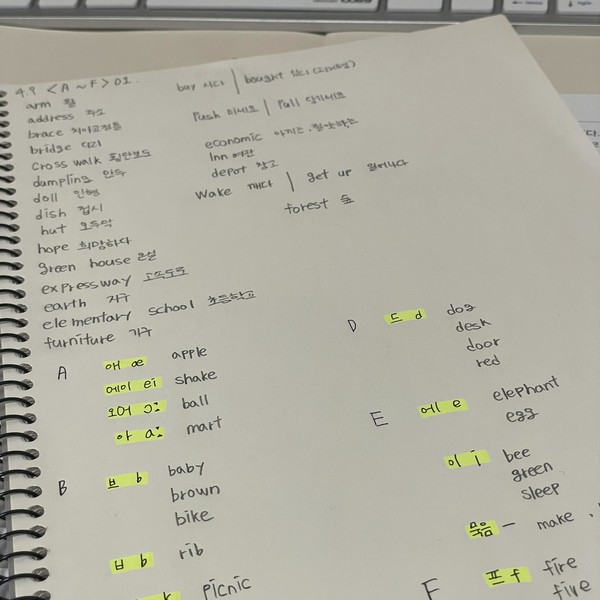 4.9 <A ~ F> 01.
arm 팔
address 주소
brace 치아교정틀
bridge 다리
cross walk 횡단보도
dumpling 만두
doll 인형
dish 접시
hut 오두막
hope 희망하다
green house 온실
expressway 고속도로
earth 지구
elementary school 초등학교
furniture 가구
buy 사다 | bought 샀다 (과거형)
Push 미세요 | Pull 당기세요
economic 아끼는, 절약하는
Inn 여관
depot 창고
wake 깨다 | get up 일어나다
forest 숲
A 애 æ apple
에이 ei shake
오어 ɔ: ball
아 a: mart
B 브 b baby
brown
bike
ㅂ b rib
k picnic
D 드 d dog
desk
door
red
E 에 e elephant
egg
이 i bee
green
sleep
묵음 - make,
F 프 f fire
five